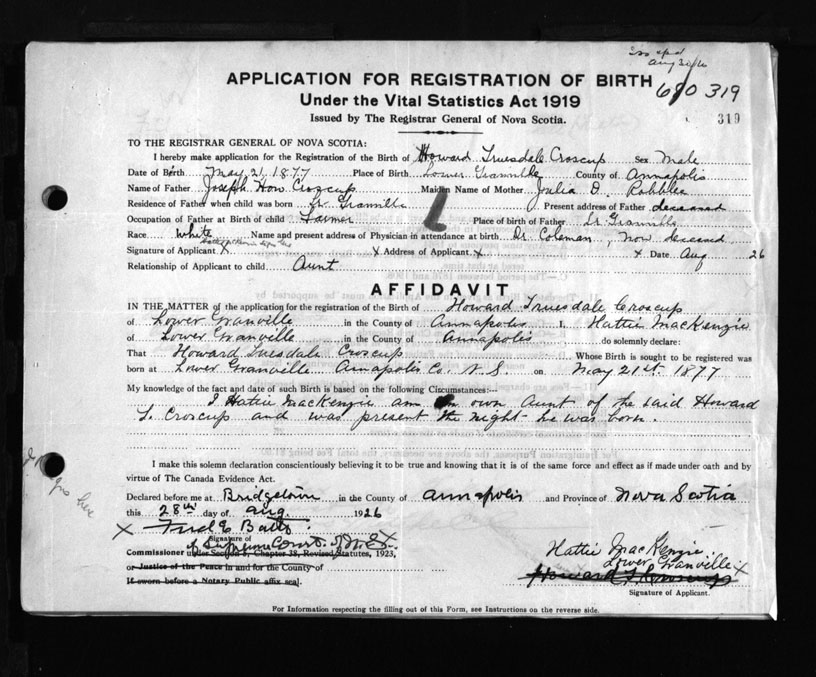 Aug 30/6
APPLICATION FOR REGISTRATION OF BIRTH 680 319
Under the Vital Statistics Act 1919
Issued by The Registrar General of Nova Scotia. 319
TO THE REGISTRAR GENERAL OF NOVA SCOTIA:
I hereby make application for the Registration of the Birth of Howard Truesdale Croscup Sex Male
Date of Birth May 21, 1877 Place of Birth Lower Granville County of Annapolis
Name of Father Joseph How Croscup Maiden Name of Mother Julia D. Robblee
Residence of Father when child was born Lr Granville Present address of Father deceased
Occupation of Father at Birth of child Farmer Place of birth of Father Lr Granville
Race White Name and present address of Physician in attendance at birth Dr Coleman, now deceased
Signature of Applicant X X Address of Applicant X X Date Aug 26
Relationship of Applicant to child Aunt
AFFIDAVIT
IN THE MATTER of the application for the registration of the Birth of Howard Truesdale Croscup
of Lower Granville in the County of Annapolis I, Hattie MacKenzie
of Lower Granville in the County of Annapolis do solemnly declare:
That Howard Truesdale Croscup Whose Birth is sought to be registered was
born at Lower Granville Annapolis Co. N.S. on May 21st 1877
My knowledge of the fact and date of such Birth is based on the following Circumstances:—
I Hattie MacKenzie am own Aunt of the said Howard
T. Croscup and was present the night he was born.
I make this solemn declaration conscientiously believing it to be true and knowing that it is of the same force and effect as if made under oath and by
virtue of The Canada Evidence Act.
Declared before me at Bridgetown in the County of Annapolis and Province of Nova Scotia
this 28th day of Aug 1926
X
Signature of
of Supreme Court
Commissioner under Section 8, Chapter 38, Revised Statutes, 1923,
or Justice of the Peace in and for the County of
If sworn before a Notary Public affix seal.
Hattie MacKenzie
Lower Granville X
Howard T Croscup
Signature of Applicant.
For Information respecting the filling out of this Form, see Instructions on the reverse side.